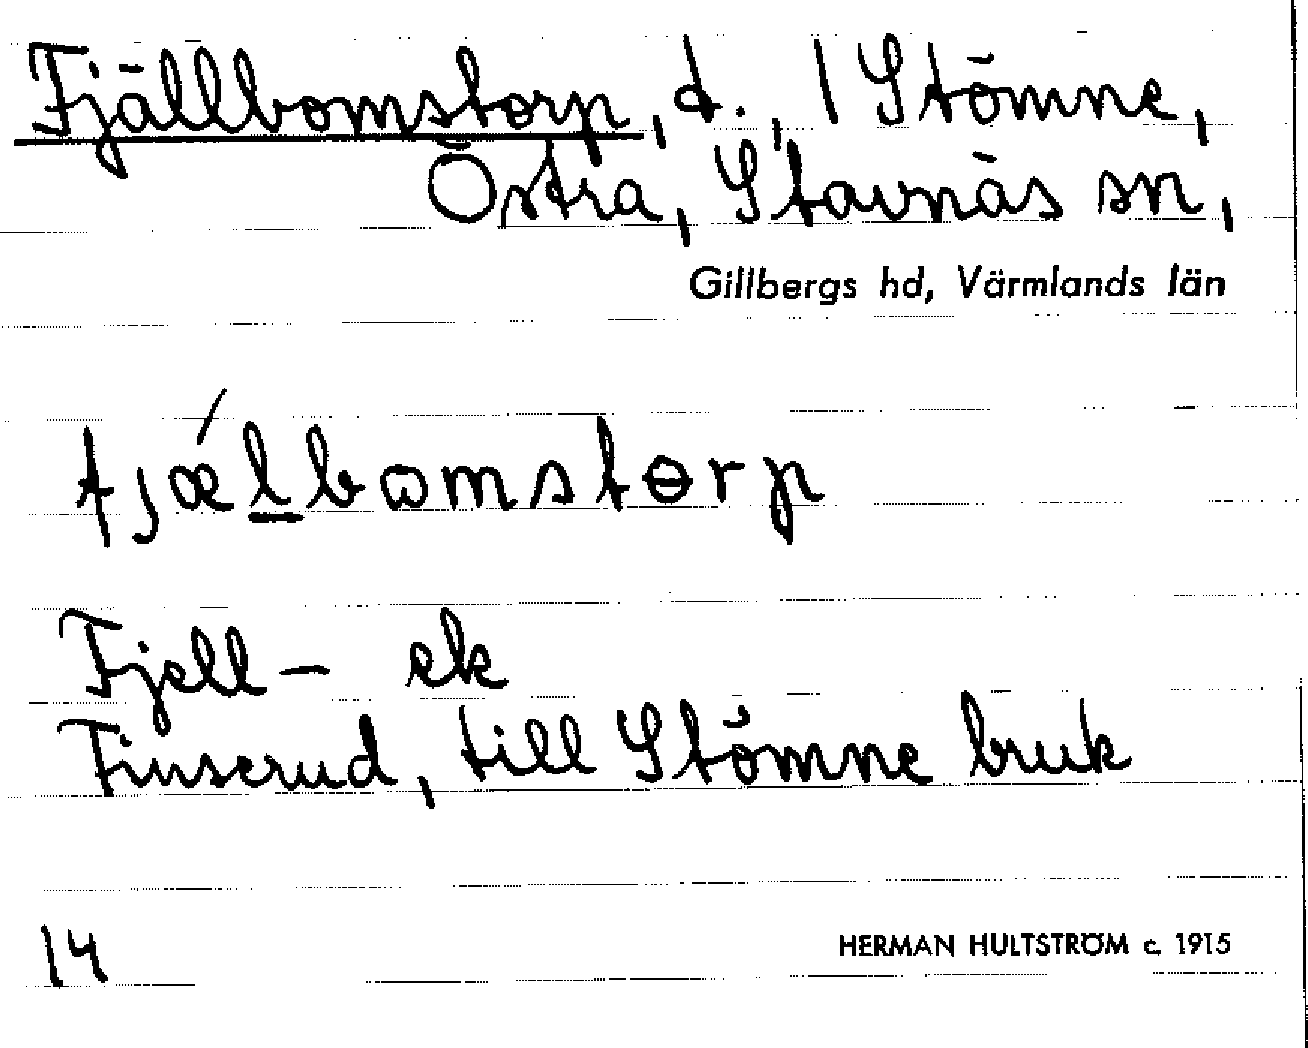 Fjällbomstorp, t., 1 Stömne,
Östra, Stavnäs sn,
Gillbergs hd, Värmlands län
fjǽl̲bωmstɵrp
Fjell– ek
Finserud, till Stömne bruk
14
HERMAN HULTSTRÖM c. 1915